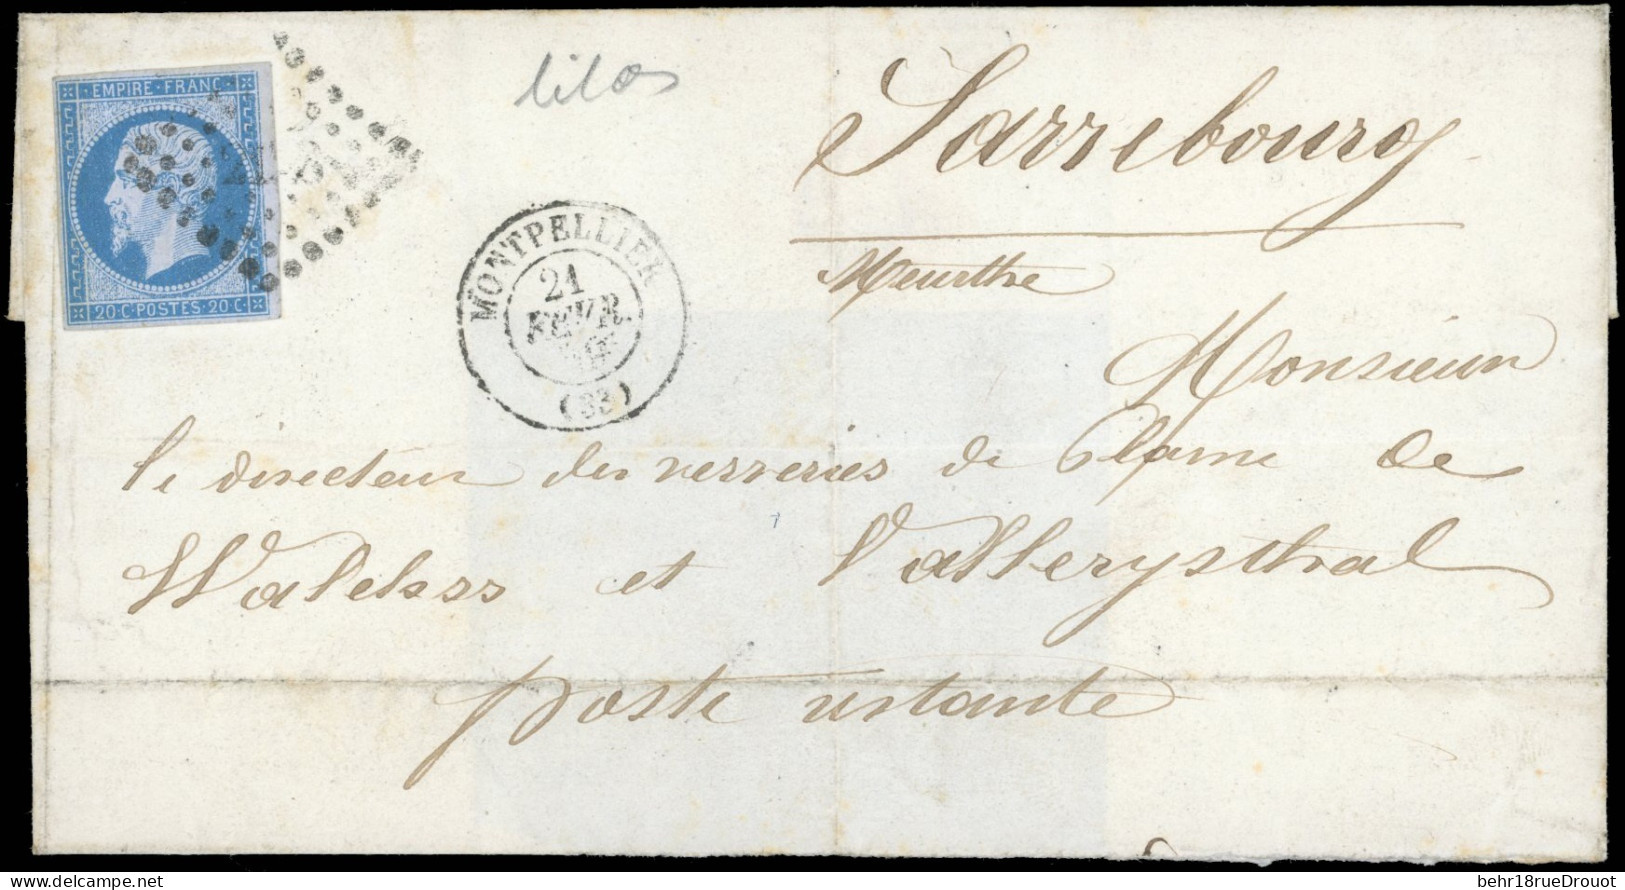 EMPIRE · FRANC ·
20·C·POSTES·20·C·
lilas
Sarrebourg
Meurthe
MONTPELLIER
21
FEVR.
(33)
Monsieur
le directeur des verreries de Plaine de
Walchss et Vallerysthal
poste restante
DELCAMPE.NET
behr18rueDrouot